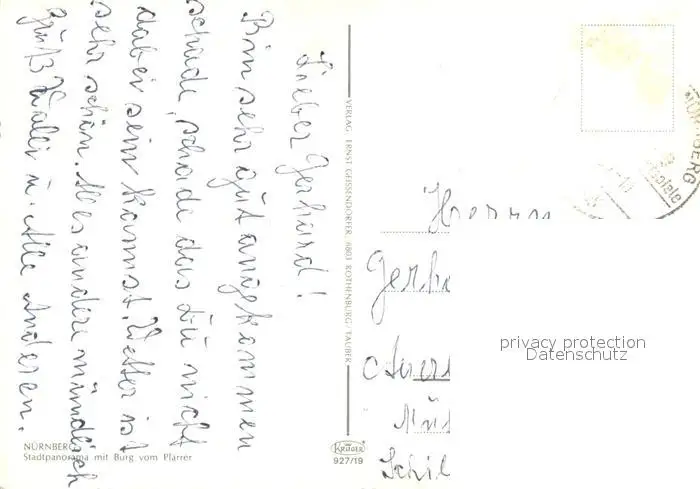 Lieber Gerhard!
Bin sehr gut angekommen
schade, schade das Du nicht
dabei sein kannst. Wetter ist
sehr schön. Alles andere mündlich
Gruß Walli u. Alle Anderen.
NÜRNBERG
Stadtpanorama mit Burg vom Plärrer
VERLAG ERNST GEISSENDÖRFER, 8803 ROTHENBURG/TAUBER
KRÜGER
927/19
Herrn
Gerh
privacy protection
Datenschutz